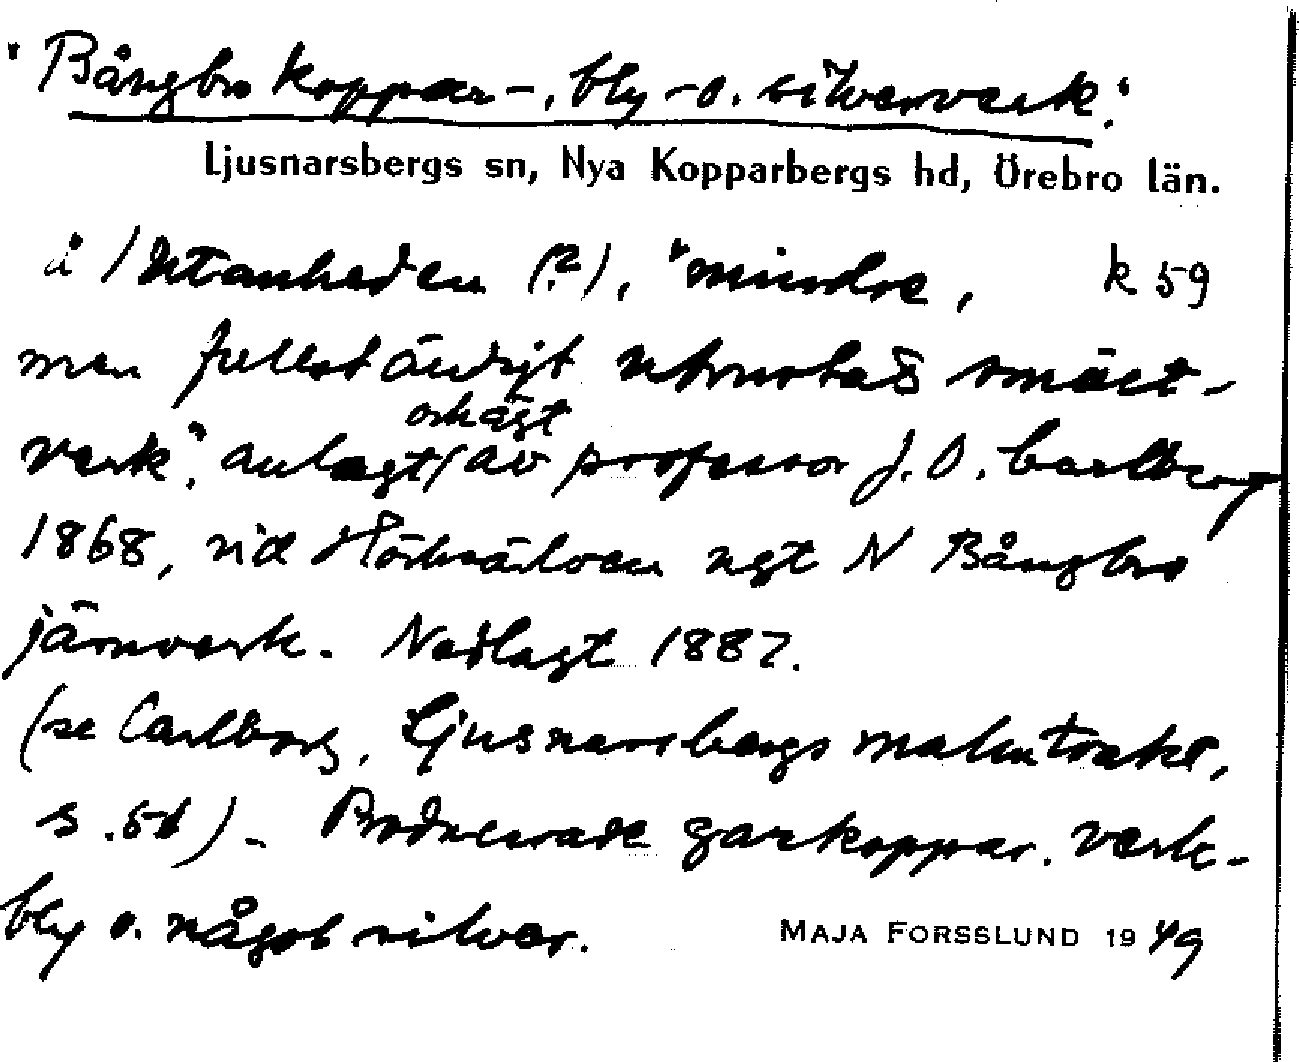 "Bångbro koppar-, bly- o. silververk."
Ljusnarsbergs sn, Nya Kopparbergs hd, Örebro län.
å / Utanheden (?), "mindre, k 59
men fullständigt utrustad smält-
och ägt
verk", anlagt / av professor J.O. Carlberg
1868, vid Hörksälven ngt N Bångbro
järnverk. Nedlagt 1887.
(se Carlborg, Ljusnarsbergs malmtrakt,
s. 51). Producerade garkoppar, verk-
bly o. något silver. MAJA FORSSLUND 1949